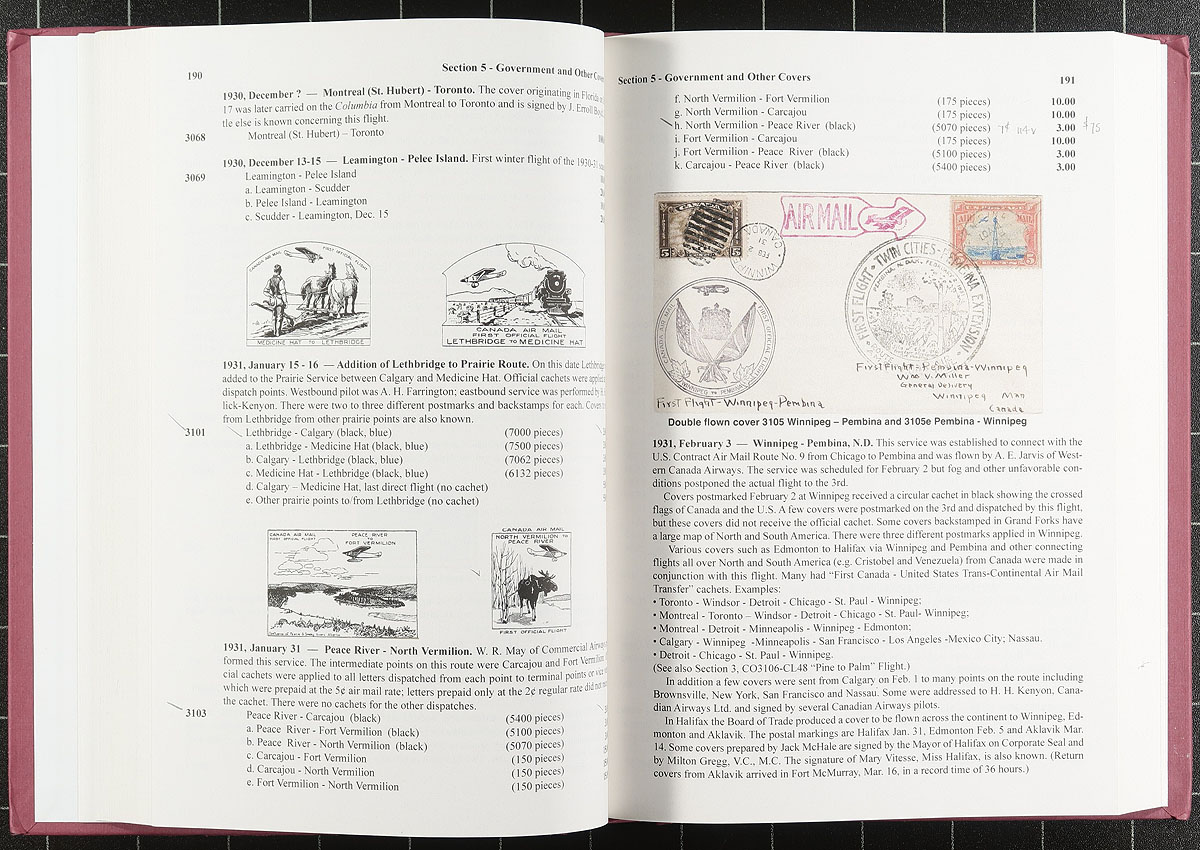 190
Section 5 - Government and Other
1930, December ? — Montreal (St. Hubert) - Toronto. The cover originating in
17 was later carried on the Columbia from Montreal to Toronto and is signed by J. Erroll
tle else is known concerning this flight.
3068 Montreal (St. Hubert) – Toronto
1930, December 13-15 — Leamington - Pelee Island. First winter flight of the
3069 Leamington - Pelee Island
a. Leamington - Scudder
b. Pelee Island - Leamington
c. Scudder - Leamington, Dec. 15
CANADA AIR MAIL FIRST OFFICIAL FLIGHT
MEDICINE HAT TO LETHBRIDGE
CANADA AIR MAIL
FIRST OFFICIAL FLIGHT
LETHBRIDGE TO MEDICINE HAT
1931, January 15 - 16 — Addition of Lethbridge to Prairie Route. On this date
added to the Prairie Service between Calgary and Medicine Hat. Official cachets were
dispatch points. Westbound pilot was A. H. Farrington; eastbound service was performed by
lick-Kenyon. There were two to three different postmarks and backstamps for each.
from Lethbridge from other prairie points are also known.
3101 Lethbridge - Calgary (black, blue) (7000 pieces)
a. Lethbridge - Medicine Hat (black, blue) (7500 pieces)
b. Calgary - Lethbridge (black, blue) (7062 pieces)
c. Medicine Hat - Lethbridge (black, blue) (6132 pieces)
d. Calgary – Medicine Hat, last direct flight (no cachet)
e. Other prairie points to/from Lethbridge (no cachet)
CANADA AIR MAIL
FIRST OFFICIAL FLIGHT
PEACE RIVER
TO
FORT VERMILION
CANADA AIR MAIL
NORTH VERMILION TO
PEACE RIVER
FIRST OFFICIAL FLIGHT
1931, January 31 — Peace River - North Vermilion. W. R. May of Commercial
formed this service. The intermediate points on this route were Carcajou and Fort
cial cachets were applied to all letters dispatched from each point to terminal points or
which were prepaid at the 5¢ air mail rate; letters prepaid only at the 2¢ regular rate did
the cachet. There were no cachets for the other dispatches.
3103 Peace River - Carcajou (black) (5400 pieces)
a. Peace River - Fort Vermilion (black) (5100 pieces)
b. Peace River - North Vermilion (black) (5070 pieces)
c. Carcajou - Fort Vermilion (150 pieces)
d. Carcajou - North Vermilion (150 pieces)
e. Fort Vermilion - North Vermilion (150 pieces)
Section 5 - Government and Other Covers
191
f. North Vermilion - Fort Vermilion (175 pieces) 10.00
g. North Vermilion - Carcajou (175 pieces) 10.00
h. North Vermilion - Peace River (black) (5070 pieces) 3.00 $75
i. Fort Vermilion - Carcajou (175 pieces) 10.00
j. Fort Vermilion - Peace River (black) (5100 pieces) 3.00
k. Carcajou - Peace River (black) (5400 pieces) 3.00
CANADA
5 5
WINNIPEG
FEB 2
31
CANADA
AIR MAIL
AIR MAIL
5 5
FIRST FLIGHT · TWIN CITIES - PEMBINA EXTENSION
WINNIPEG TO PEMBINA
First Flight - Pembina - Winnipeg
Wm V. Miller
General Delivery
Winnipeg Man
Canada
First Flight - Winnipeg - Pembina
Double flown cover 3105 Winnipeg – Pembina and 3105e Pembina - Winnipeg
1931, February 3 — Winnipeg - Pembina, N.D. This service was established to connect with the
U.S. Contract Air Mail Route No. 9 from Chicago to Pembina and was flown by A. E. Jarvis of West-
ern Canada Airways. The service was scheduled for February 2 but fog and other unfavorable con-
ditions postponed the actual flight to the 3rd.
Covers postmarked February 2 at Winnipeg received a circular cachet in black showing the crossed
flags of Canada and the U.S. A few covers were postmarked on the 3rd and dispatched by this flight,
but these covers did not receive the official cachet. Some covers backstamped in Grand Forks have
a large map of North and South America. There were three different postmarks applied in Winnipeg.
Various covers such as Edmonton to Halifax via Winnipeg and Pembina and other connecting
flights all over North and South America (e.g. Cristobel and Venezuela) from Canada were made in
conjunction with this flight. Many had “First Canada - United States Trans-Continental Air Mail
Transfer” cachets. Examples:
• Toronto - Windsor - Detroit - Chicago - St. Paul - Winnipeg;
• Montreal - Toronto – Windsor - Detroit - Chicago - St. Paul- Winnipeg;
• Montreal - Detroit - Minneapolis - Winnipeg - Edmonton;
• Calgary - Winnipeg -Minneapolis - San Francisco - Los Angeles -Mexico City; Nassau.
• Detroit - Chicago - St. Paul - Winnipeg.
(See also Section 3, CO3106-CL48 “Pine to Palm” Flight.)
In addition a few covers were sent from Calgary on Feb. 1 to many points on the route including
Brownsville, New York, San Francisco and Nassau. Some were addressed to H. H. Kenyon, Cana-
dian Airways Ltd. and signed by several Canadian Airways pilots.
In Halifax the Board of Trade produced a cover to be flown across the continent to Winnipeg, Ed-
monton and Aklavik. The postal markings are Halifax Jan. 31, Edmonton Feb. 5 and Aklavik Mar.
14. Some covers prepared by Jack McHale are signed by the Mayor of Halifax on Corporate Seal and
by Milton Gregg, V.C., M.C. The signature of Mary Vitesse, Miss Halifax, is also known. (Return
covers from Aklavik arrived in Fort McMurray, Mar. 16, in a record time of 36 hours.)